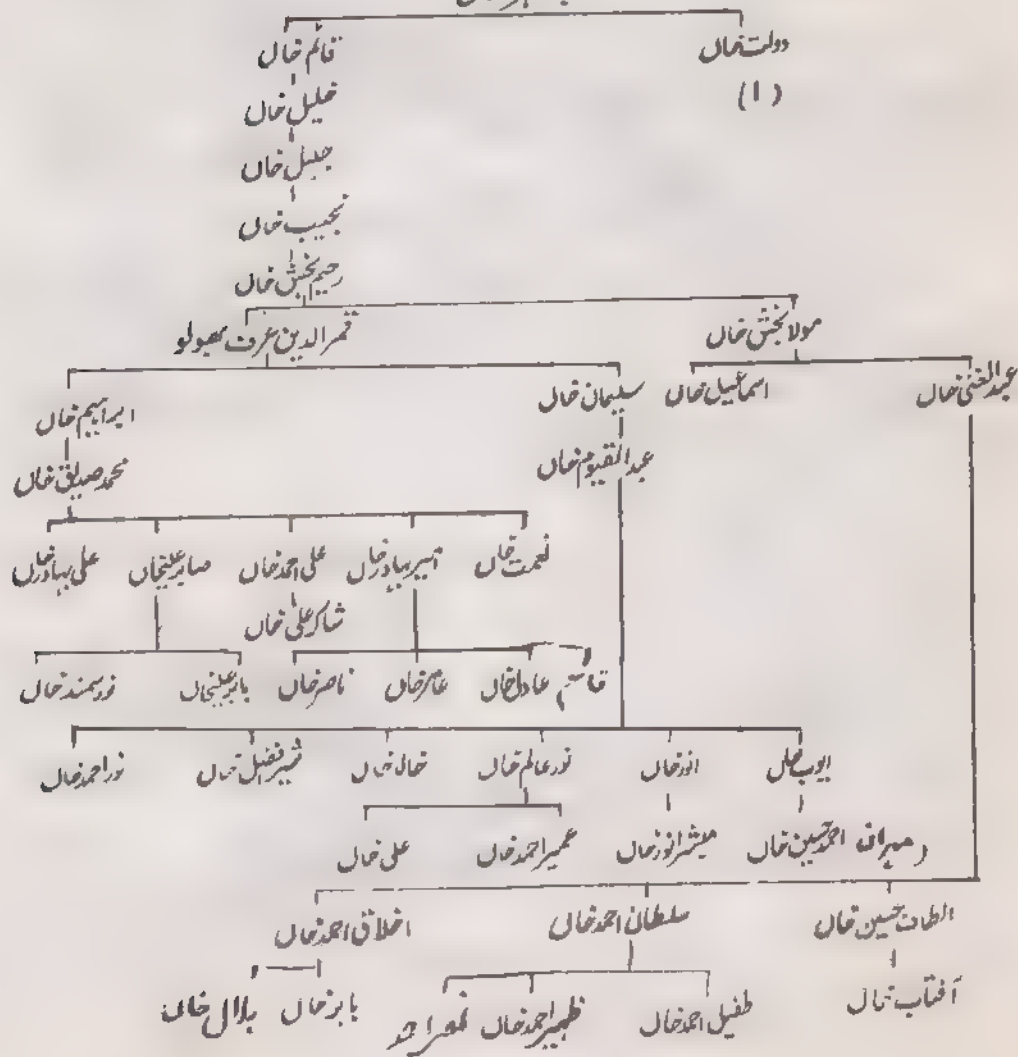 دولت خاں قائم خاں
(۱) خلیل خاں
جمیل خاں
نجیب خاں
رحیم بخش خاں
مولا بخش خاں قمر الدین عرف بھولو
عبدالغنی خاں اسماعیل خاں سلیمان خاں ابراہیم خاں
عبدالقیوم خاں محمد صدیق خاں
نعمت خاں امیر بہادر خاں علی احمد خاں صابر علیخاں علی بہادر خاں
شاکر علی خاں
قاسم عادل خاں عامر خاں ناصر خاں بابر علیخاں نور سمند خاں
ایوب خاں انور خاں نور عالم خاں خالد خاں شبیر فضیل خاں نور احمد خاں
احمد حسین خاں مبشر انور خاں عمیر احمد خاں علی خاں
الطاف حسین خاں سلطان احمد خاں اخلاق احمد خاں
آفتاب خاں طفیل احمد خاں ظہیر احمد خاں بابر خاں بلال خاں